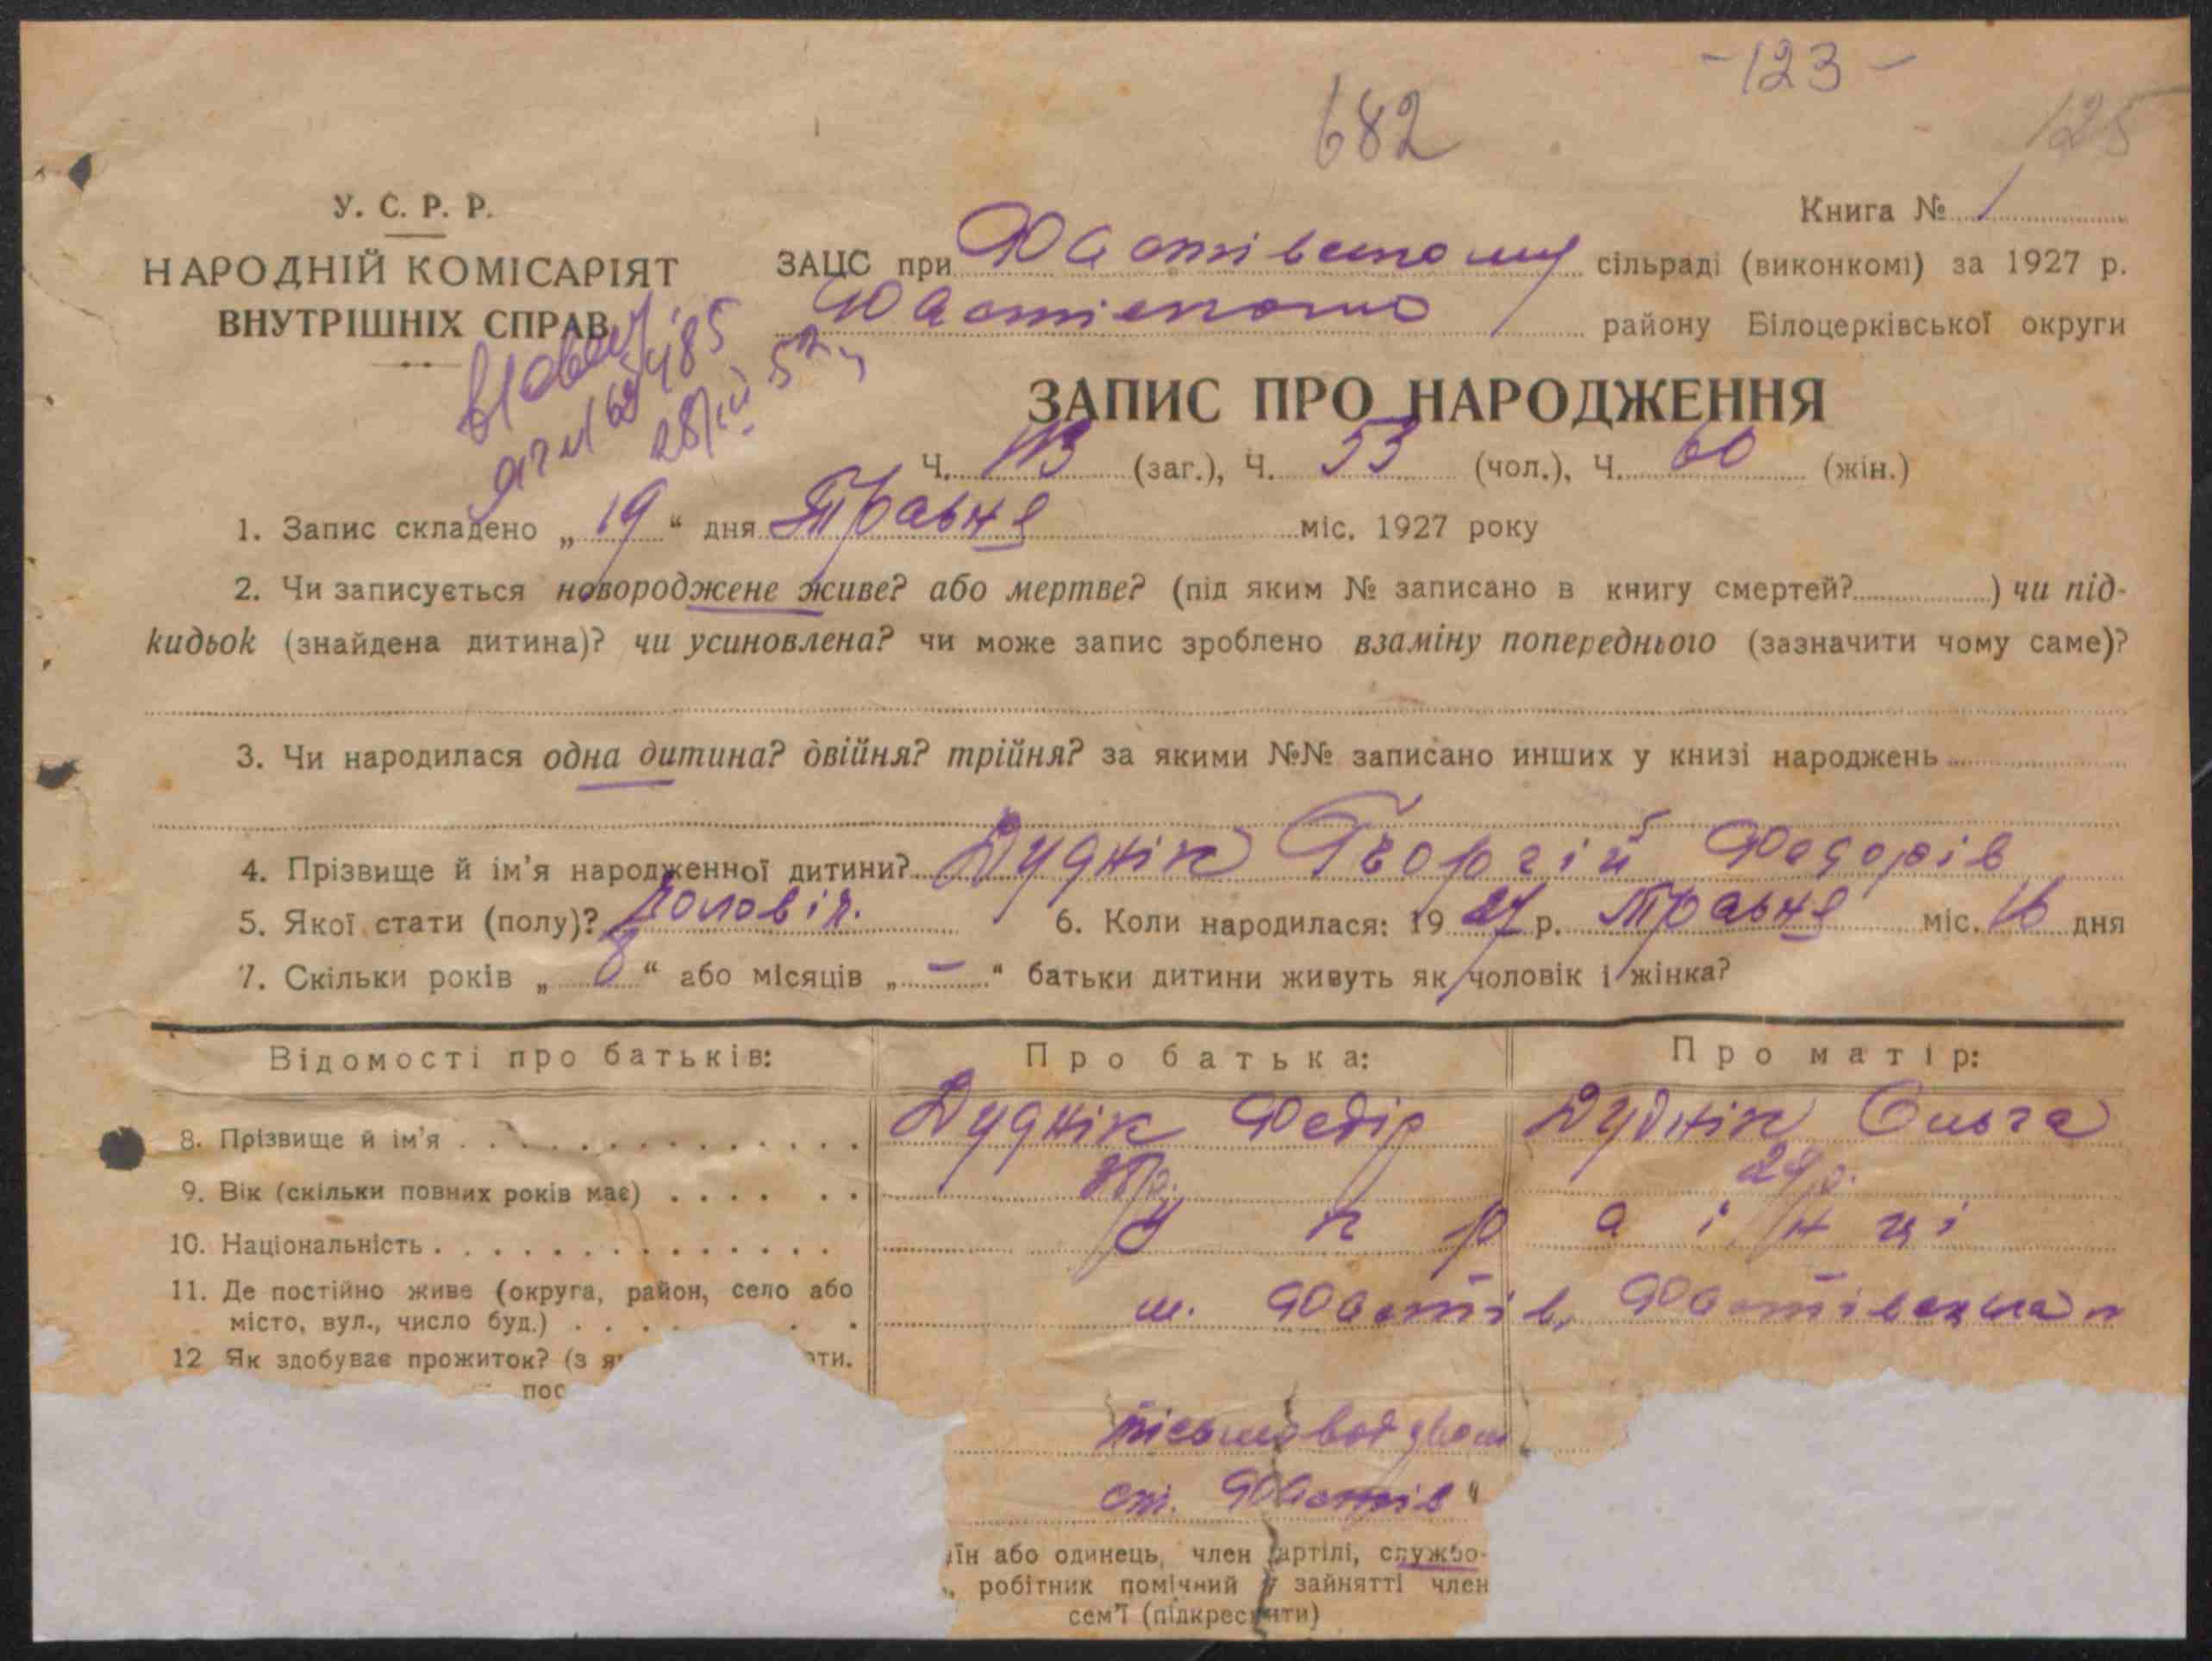 -123-
682
125
У. С. Р. Р.
Книга № 1
НАРОДНІЙ КОМІСАРІЯТ
ВНУТРІШНІХ СПРАВ
ЗАЦС при Фастівському сільраді (виконкомі) за 1927 р.
району Білоцерківської округи
ЗАПИС ПРО НАРОДЖЕННЯ
Ч. 113 (заг.), Ч. 53 (чол.), Ч. 60 (жін.)
1. Запис складено „ 19 “ дня Травня міс. 1927 року
2. Чи записується новороджене живе? або мертве? (під яким № записано в книгу смертей? ) чи під-
кидьок (знайдена дитина)? чи усиновлена? чи може запис зроблено взаміну попереднього (зазначити чому саме)?
3. Чи народилася одна дитина? двійня? трійня? за якими №№ записано инших у книзі народжень
4. Прізвище й ім’я народженної дитини? Дуднік Георгій Федорів
5. Якої стати (полу)? Чоловіч. 6. Коли народилася: 19 27 р. Травня міс. 16 дня
7. Скільки років „ 8 “ або місяців „ – “ батьки дитини живуть як чоловік і жінка?
Відомості про батьків: Про батька: Про матір:
8. Прізвище й ім’я Дуднік Федір Дуднік Ольга
9. Вік (скільки повних років має)
10. Національність Українці
11. Де постійно живе (округа, район, село або
місто, вул., число буд.) м. Фастів,
12 Як здобуває прожиток? (з
пос
ст. Фастів
їн або одинець, член артілі, службо-
робітник помічний у зайнятті член
сем’ї (підкреслити)